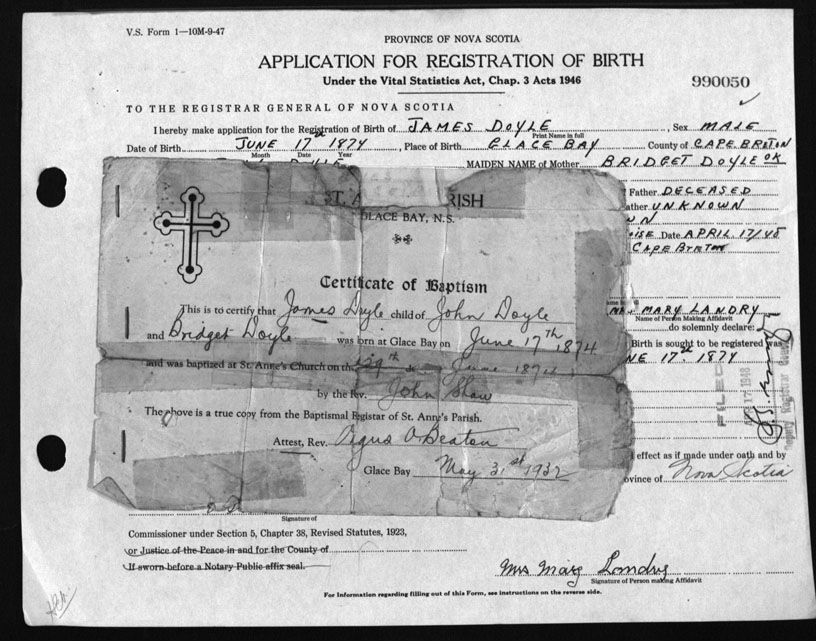 V.S. Form 1—10M-9-47
PROVINCE OF NOVA SCOTIA
APPLICATION FOR REGISTRATION OF BIRTH
Under the Vital Statistics Act, Chap. 3 Acts 1946
990050
TO THE REGISTRAR GENERAL OF NOVA SCOTIA
I hereby make application for the Registration of Birth of JAMES DOYLE, Sex MALE
Print Name in full
Date of Birth JUNE 17th 1874, Place of Birth GLACE BAY County of CAPE BRETON
Month Date Year
DOYLE MAIDEN NAME of Mother BRIDGET DOYLE OK
Father DECEASED
UNKNOWN
Date APRIL 17/48
CAPE BRETON
MARY LANDRY
Name of Person Making Affidavit
do solemnly declare:
Birth is sought to be registered was
17th 1874
FILED
17 1948
Deputy Registrar
effect as if made under oath and by
Province of Nova Scotia
ST. PARISH
GLACE BAY, N.S.
Certificate of Baptism
This is to certify that James Doyle child of John Doyle
and Bridget Doyle was born at Glace Bay on June 17th 1874
and was baptized at St. Anne's Church on the June 1874
by the Rev. John Shaw
The above is a true copy from the Baptismal Registar of St. Anne's Parish.
Attest, Rev.
Glace Bay May 31st 1932
Signature of
Commissioner under Section 5, Chapter 38, Revised Statutes, 1923,
or Justice of the Peace in and for the County of
If sworn before a Notary Public affix seal.
Mrs Mary Landry
Signature of Person making Affidavit
For Information regarding filling out of this Form, see instructions on the reverse side.